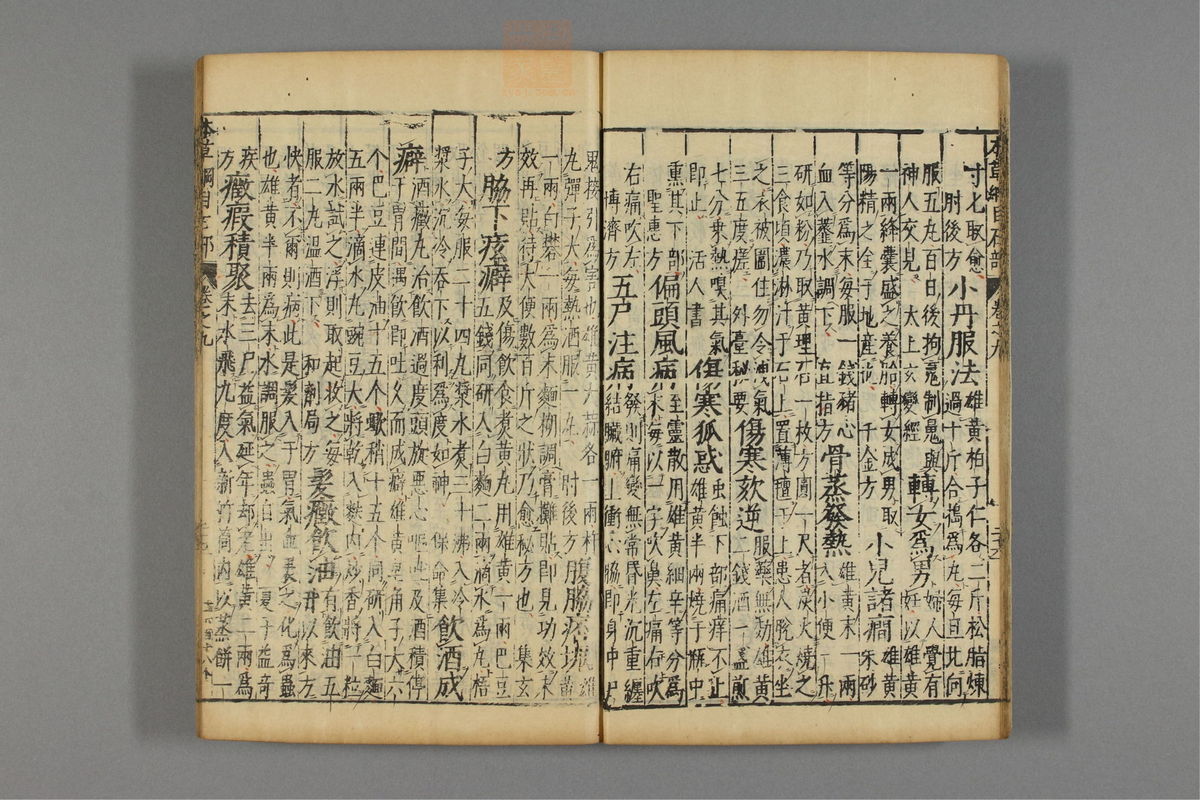 本草綱目石部 卷之九
寸匕取愈 肘後方 小丹服法 雄黃柏子仁各二斤松脂煉過十斤合擣爲丸每旦北向
服五丸百日後拘魂制魄與神人交見 太上玄變經 轉女爲男 婦人覺有妊以雄黃
一兩絳囊盛之養胎轉女成男取陽精之全于地產也 千金方 小兒諸癇 朱砂雄黃
等分爲末每服一錢豬心血入虀水調下 直指方 骨蒸發熱 雄黃末一兩入小便一升
研如粉乃取黃理石一枚方圓一尺者炭火燒之三食頃濃淋汁于石上置薄氊于上患人脫衣坐
之衣被圍住勿令洩氣三五度瘥 外臺秘要 傷寒欬逆 服藥無効雄黃二錢酒一盞煎
七分乘熱嗅其氣即止 活人書 傷寒狐惑 虫蝕下部痛痒不止雄黃半兩燒于瓶中
熏其下部 聖惠方 偏頭風病 至靈散用雄黃細辛等分爲末每以一字吹鼻左痛右吹
右痛吹左 博濟方 五尸注病 發則痛變無常昏恍沉重纏結臟腑上衝心脇即身中尸
鬼接引爲害也雄黃大蒜各一兩杵丸彈子大每熱酒服一丸 肘後方
一兩白礬一兩爲末麵糊調膏攤貼即見功效未效再貼待大便數百斤之狀乃愈秘方也 集玄
方 脇下痃癖 及傷飲食煮黃丸用雄黃一兩巴豆五錢同研入白麵二兩滴水爲丸梧
子大每服二十四丸漿水煮三十沸入冷漿水沉冷吞下以利爲度如神 保命集 飲酒成
癖 酒癥丸治飲酒過度頭旋惡心嘔吐及酒積停于胃間遇飲即吐久而成癖雄黃皂角子大六
个巴豆連皮油十五个蠍稍十五个同研入白麵五兩半滴水丸豌豆大將乾入麩內炒香將一粒
放水試之浮則取起收之每服二丸溫酒下 和劑局方 髮癥飲油 有飲油五升以來方
快者不爾則病此是髮入于胃氣血裹之化爲蟲也雄黃半兩爲末水調服之蟲自出 夏子益奇
疾方 癥瘕積聚 去三尸益氣延年却老雄黃二兩爲末水飛九度入新竹筒內以蒸餅一
本草綱目石部 卷之九